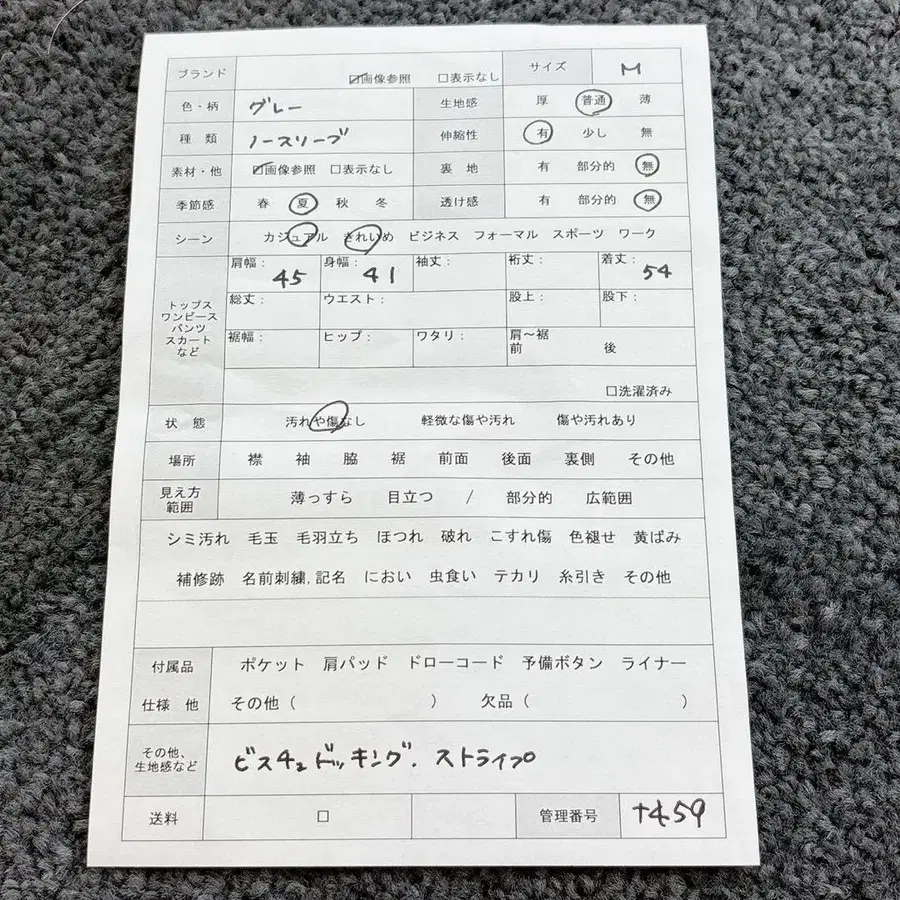 ブランド ☑画像参照 □表示なし サイズ M
色・柄 グレー 生地感 厚 普通 薄
種 類 ノースリーブ 伸縮性 有 少し 無
素材・他 ☑画像参照 □表示なし 裏 地 有 部分的 無
季節感 春 夏 秋 冬 透け感 有 部分的 無
シーン カジュアル きれいめ ビジネス フォーマル スポーツ ワーク
トップス
ワンピース
パンツ
スカート
など
肩幅: 45 身幅: 41 袖丈: 裄丈: 着丈: 54
総丈: ウエスト: 股上: 股下:
裾幅: ヒップ: ワタリ: 肩〜裾
前 後
□洗濯済み
状 態 汚れや傷なし 軽微な傷や汚れ 傷や汚れあり
場所 襟 袖 脇 裾 前面 後面 裏側 その他
見え方
範囲
薄っすら 目立つ / 部分的 広範囲
シミ汚れ 毛玉 毛羽立ち ほつれ 破れ こすれ傷 色褪せ 黄ばみ
補修跡 名前刺繍,記名 におい 虫食い テカリ 糸引き その他
付属品 ポケット 肩パッド ドローコード 予備ボタン ライナー
仕様 他 その他( ) 欠品( )
その他、
生地感など
ビスチェドッキング. ストライプ
送料 □ 管理番号 +459